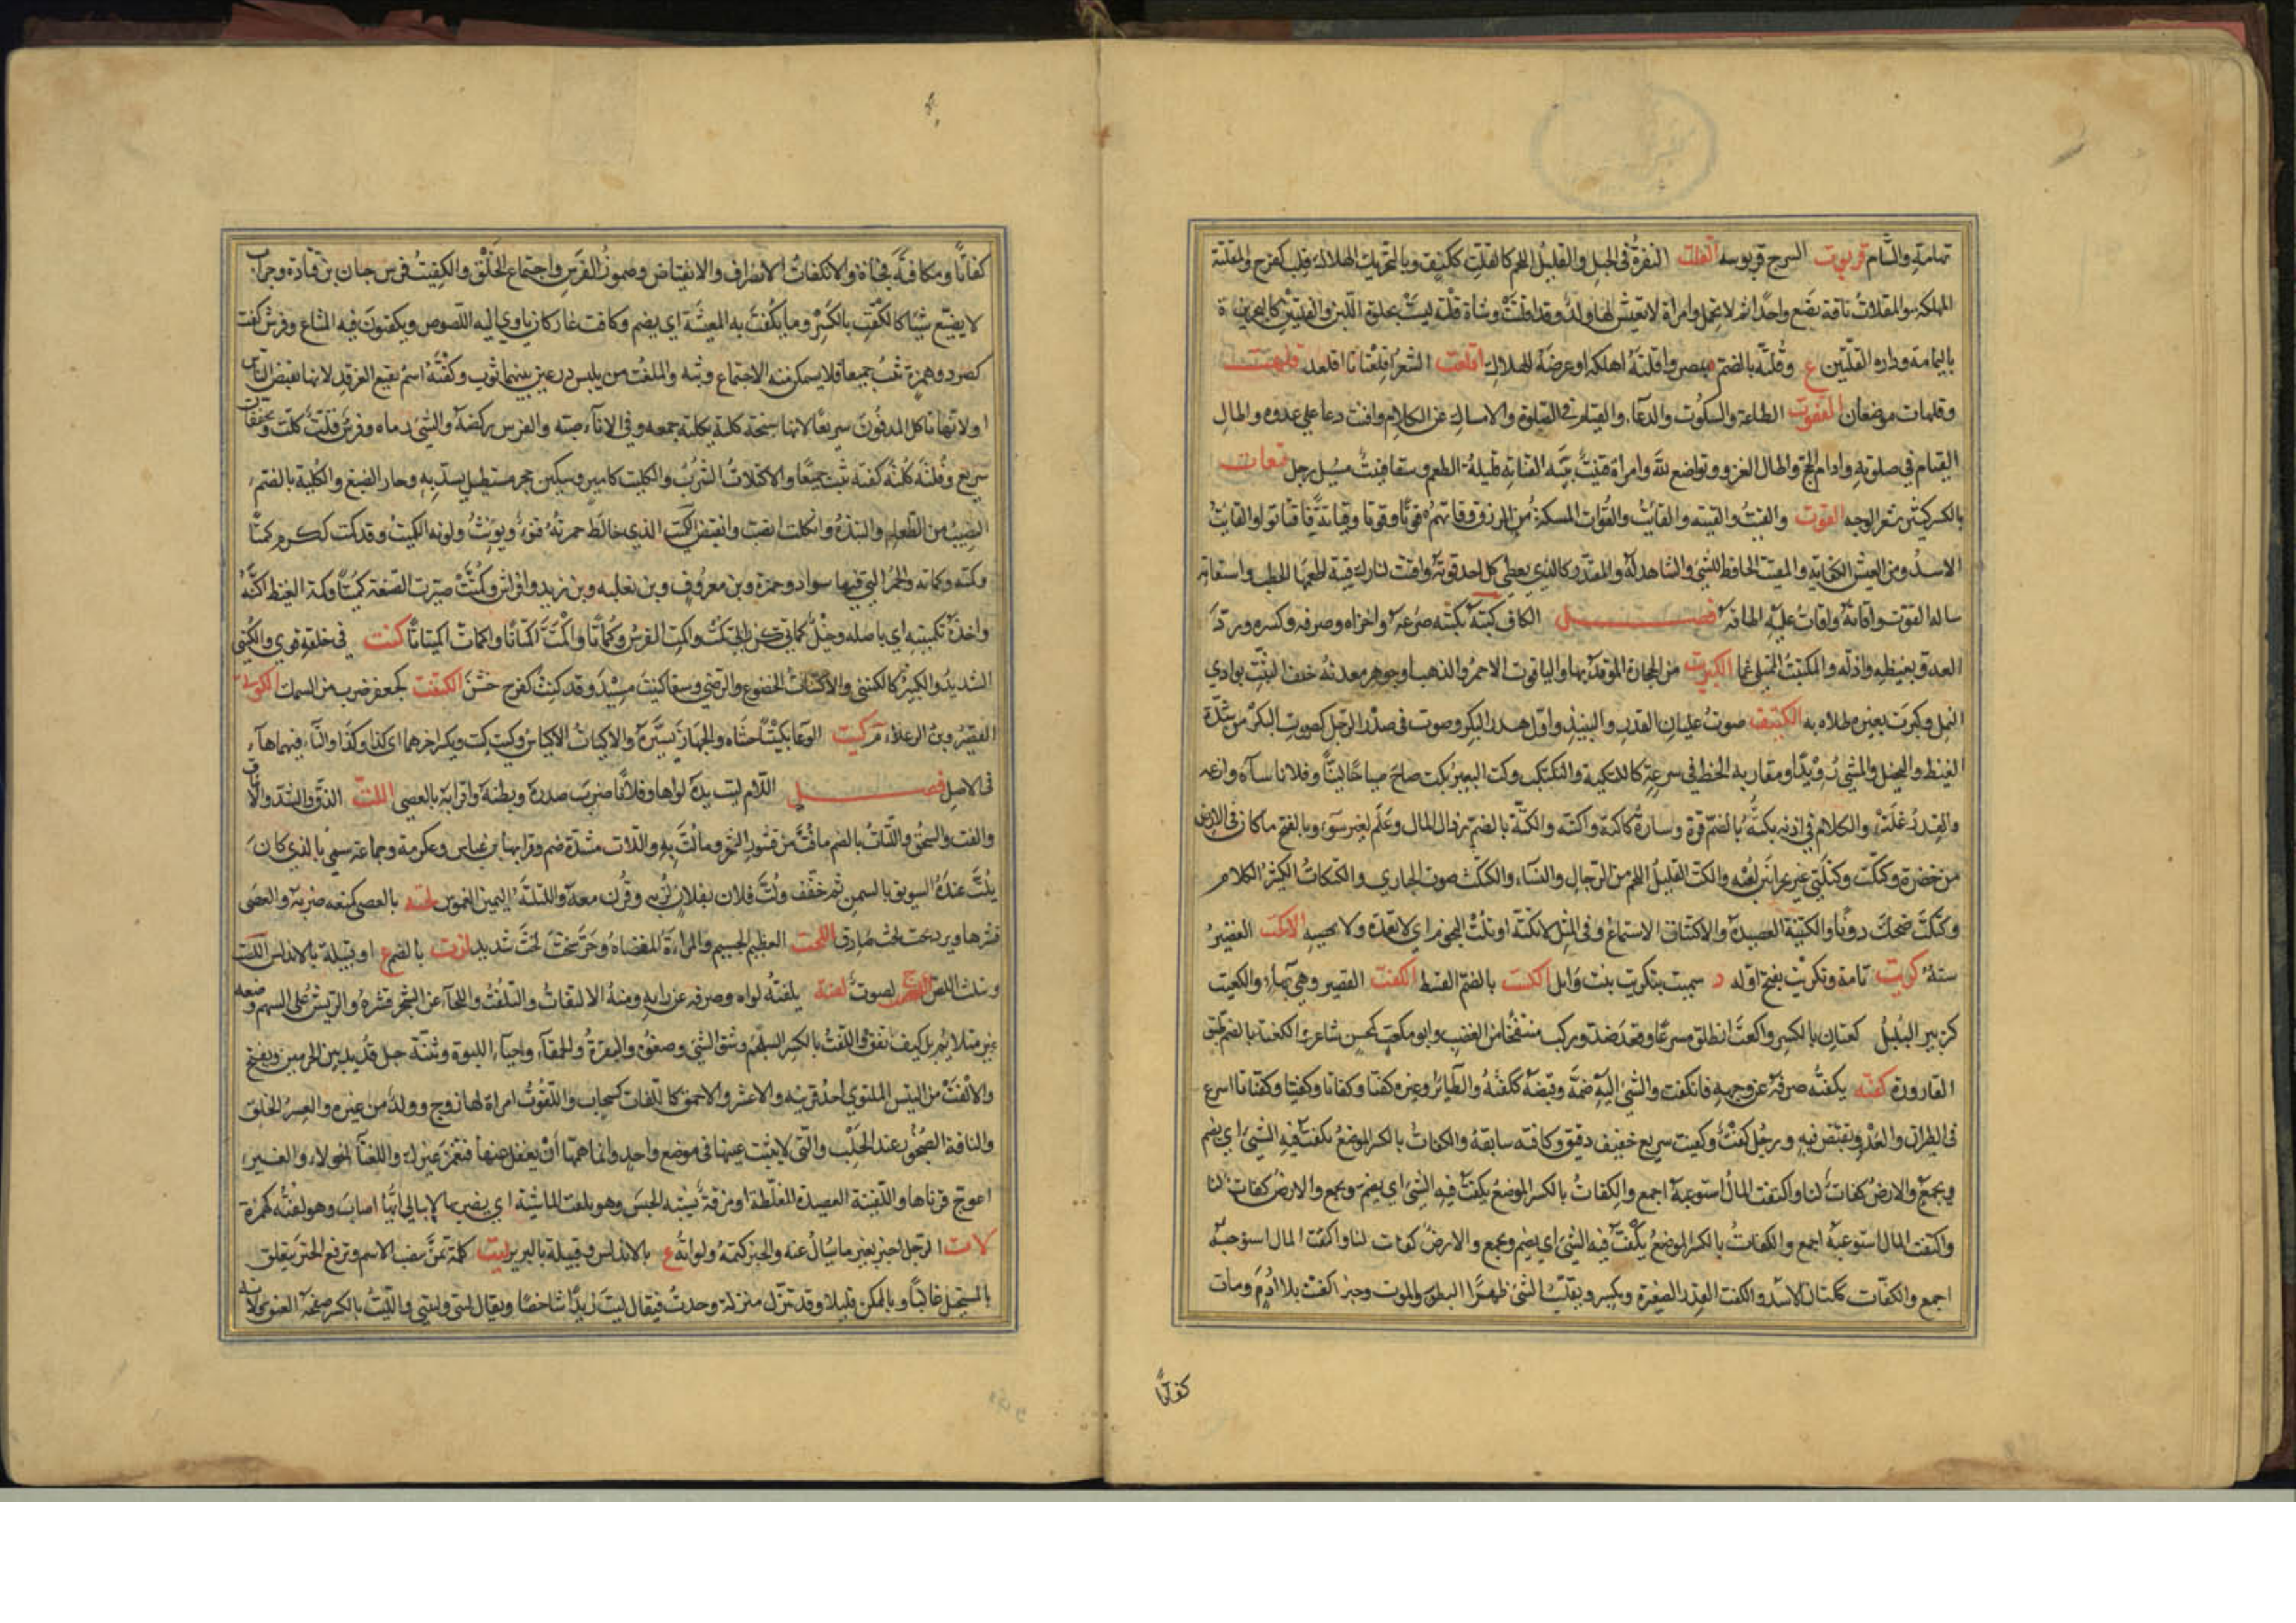 تهامة والشام قربوت السرج قربوسه القلت النقرة في الجبل والقليل اللحم كالقلت ككتف وبالتحريك الهلاك قلت كفرح والمقلتة
المهلكة والمقلات ناقة تضع واحدا ثم لا تحمل وامراة لا يعيش لها ولد وقد اقلتت وشاة قلتة ليست بحلوة اللبن والقلتين كالبحرين ة
باليمامة ودارة القلتين ع وقلتة بالضم بمصر واقلته اهلكه او عرضه للهلاك اقلعت الشعر اقلعتاتا اقلعد قلهت
وقلهات موضعان القنوت الطاعة والسكوت والدعاء والقيام في الصلوة والامساك عن الكلام واقنت دعا على عدوه واطال
القيام في صلوته وادام الحج واطال الغزو وتواضع لله وامراة قنيت بينة القناتة قليلة الطعم وسقا قنيت مسيل رجل قنعات
بالكسر كثير شعر الوجه القوت والقيت والقيته والقائت والقوات المسكة من الرزق وقاتهم قوتا وقوتا وقياتة فاقتاتوا والقائت
الاسد ومن العيش الكفاية والمقيت الحافظ للشي والشاهد له والمقتدر كالذي يعطي كل احد قوته واقتت لنارك قيتة اطعمها الحطب واستقاته
ساله القوت واقاته واقات عليه اطاقه فصل الكاف كبته يكبته صرعه واخزاه وصرفه وكسره ورد
العدو بغيظه واذله والمكتبت الممتلي غما الكبريت من الحجارة الموقد بها والياقوت الاحمر والذهب او جوهر معدنه خلف التبت بوادي
النمل وكبرت بعيره طلاه به الكتيت صوت غليان القدر والنبيذ واول هدر البكر وصوت في صدر الرجل كصوت البكر من شدة
الغيظ والبخيل والمشي رويدا ومقاربة الخطى في سرعة كالكتكتة والتكتكت وكت البعير يكت صاح صياحا لينا وفلانا ساءه وارغمه
والقدر غلت والكلام في اذنه يكته بالضم قره وساره كاكته واكتته والكتة بالضم رذال المال وعلم لعنز سوء وبالفتح ما كان في الارض
من خضرة وكتكت وكتكتى غير مجراتين لعبة والكت القليل اللحم من الرجال والنساء والكتكت صوت الحبارى والكتكات الكثير الكلام
وكتكت ضحك دونا والكتيتة العصيدة والاكتتات الاستماع وفي المثل لا تكته او تكت النجوم اي لا تعده ولا تحصيه الاكت القصير
سنة كريت تامة وتكريت بفتح اوله د سميت بتكريت بنت وائل الكست بالضم القسط الكعت القصير وهي بهاء والكعيت
كزبير البلبل كعتان بالكسر واكعت انطلق مسرعا وقعد ضد وركب منتفخا من الغضب وابو مكعت كمحسن شاعر الكعتة بالضم طبق
القارورة كفته يكفته صرفه عن وجهه فانكفت والشي اليه ضمه وقبضه ككفته والطائر وغيره كفتا وكفاتا وكفيتا وكفتانا اسرع
في الطيران والعدو وتقبض فيه ورجل كفت وكفيت سريع خفيف دقيق وكافته سابقه والكفات بالكسر الموضع يكفت فيه الشي اي يضم
ويجمع والارض كفات لنا واكتفت المال استوعبه اجمع والكفات بالكسر الموضع يكفت فيه الشي اي يضم ويجمع والارض كفات لنا
واكتفت المال استوعبه اجمع والكفات بالكسر الموضع يكفت فيه الشي اي يضم ويجمع والارض كفات لنا واكتفت المال استوعبه
اجمع والكفات ككتان الاسد والكفت القدر الصغيرة ويكسر وتقليب الشي ظهرا لبطن والموت وخبز كفت بلا ادم ومات
كفاتا
كفاتا ومكافتة فجاءة والانكفات الانصراف والانقباض وضمور الفرس واجتماع الخلق والكفيت فرس حيان بن قتادة وجراب
لا يضيع شيئا كالكفت بالكسر وما يكفت به المعيشة اي يضم وكافت غار كان ياوي اليه اللصوص ويكفتون فيه المتاع وفرس كفت
كصرد وهمزة تثب جميعا فلا يستمكن منه لاجتماع وثبه والمكفت من يلبس درعين بينهما ثوب وكفتة اسم بقيع الغرقد لانها تقبض الناس
او لانها تاكل المدفون سريعا لانها سبخة كلته يكلته جمعه وفي الاناء صبه والفرس ركضه والشي رماه وفرس فلت كلت ويخففان
سريع وفلتة كلتة كفتة تثب جميعا والاكتلات الشرب والكليت كامير وسكين حجر مستطيل يسد به وجار الضبع والكلتة بالضم
النصيب من الطعام والنبذة وانكلت انصب وانقبض الكميت الذي خالط حمرته قنوء ويونث ولونه الكمتة وقد كمت ككرم كمتا
وكمتة وكماتة والخمر التي فيها سواد وحمرة وبن معروف وبن ثعلبة وبن زيد وافراس وكمتت صيرت بالصنعة كميتا وكمت الغيظ اكنه
واخذه بكميتته اي باصله وخيل كماتي كزرابي كمت واكمت الفرس وكماتا واكمت اكمتاتا واكمات اكميتاتا كنت في خلقه قوي والكنتي
الشديد والكبير كالكنتني والاكتنات الخضوع والرضى وسقا كنيت مسيك وقد كنت كفرح خشن الكنعت كجعفر ضرب من السمك الكوتي
القصير وبن الرعلاء م كيت الوعاء تكييتا حشاه والجهاز يسره والاكيات الاكياس وكيت وكيت ويكسر اخرهما اي كذا وكذا والتاء فيهما هاء
في الاصل فصل اللام لبت يده لواها وفلانا ضرب صدره وبطنه واقرابه بالعصى اللت الدق والشد والايثاق
والفت والسحق واللتات بالضم ما فت من قشور الشجر وما لت به واللات مشددة صنم وقرا بها بن عباس وعكرمة وجماعة سمي بالذي كان
يلت عنده السويق بالسمن ثم خفف ولت فلان بفلان لز به وقرن معه واللتلتة اليمين الغموس لحته بالعصى كمنعه ضربه والعصى
قشرها وبرد بحت لحت صادق اللخت العظيم الجسيم والمراة المفضاة وحر سخت لخت شديد لزت بالضم ع او قبيلة بالاندلس اللصت
ويثلث اللص ج لصوت لفته يلفته لواه وصرفه عن رايه ومنه الالتفات والتلفت واللحاء عن الشجر قشره والريش على السهم وضعه
غير متلائم بل كيف تفق واللفت بالكسر السلجم وشق الشي وصغوه والبقرة والحمقاء وحياء اللبوة وثنية جبل قديد بين الحرمين ويفتح
والالفت من التيس الملتوي احد قرنيه والاعسر والاحمق كاللفات كسحاب واللفوت امراة لها زوج وولد من غيره والعسر الخلق
والناقة الضجور عند الحلب والتي لا تثبت عينها في موضع واحد وانما همها ان يغفل عنها فتغمز غيرك واللفتاء الحولاء والعنز
اعوج قرناها واللفيتة العصيدة المغلظة او مرقة تشبه الحيس وهو يلفت الماشية اي يضربها لا يبالي ايها اصاب وهو لفتة كهمزة
لات الرجل اخبر بغير ما يسال عنه والخبر كتمه ولواتة ع بالاندلس وقبيلة بالبربر ليت كلمة تمن تنصب الاسم وترفع الخبر يتعلق
بالمستحيل غالبا وبالممكن قليلا وقد تنزل منزلة وجدت فيقال ليت زيدا شاخصا ويقال ليتي وليتني والليت بالكسر صفحة العنق ولاته